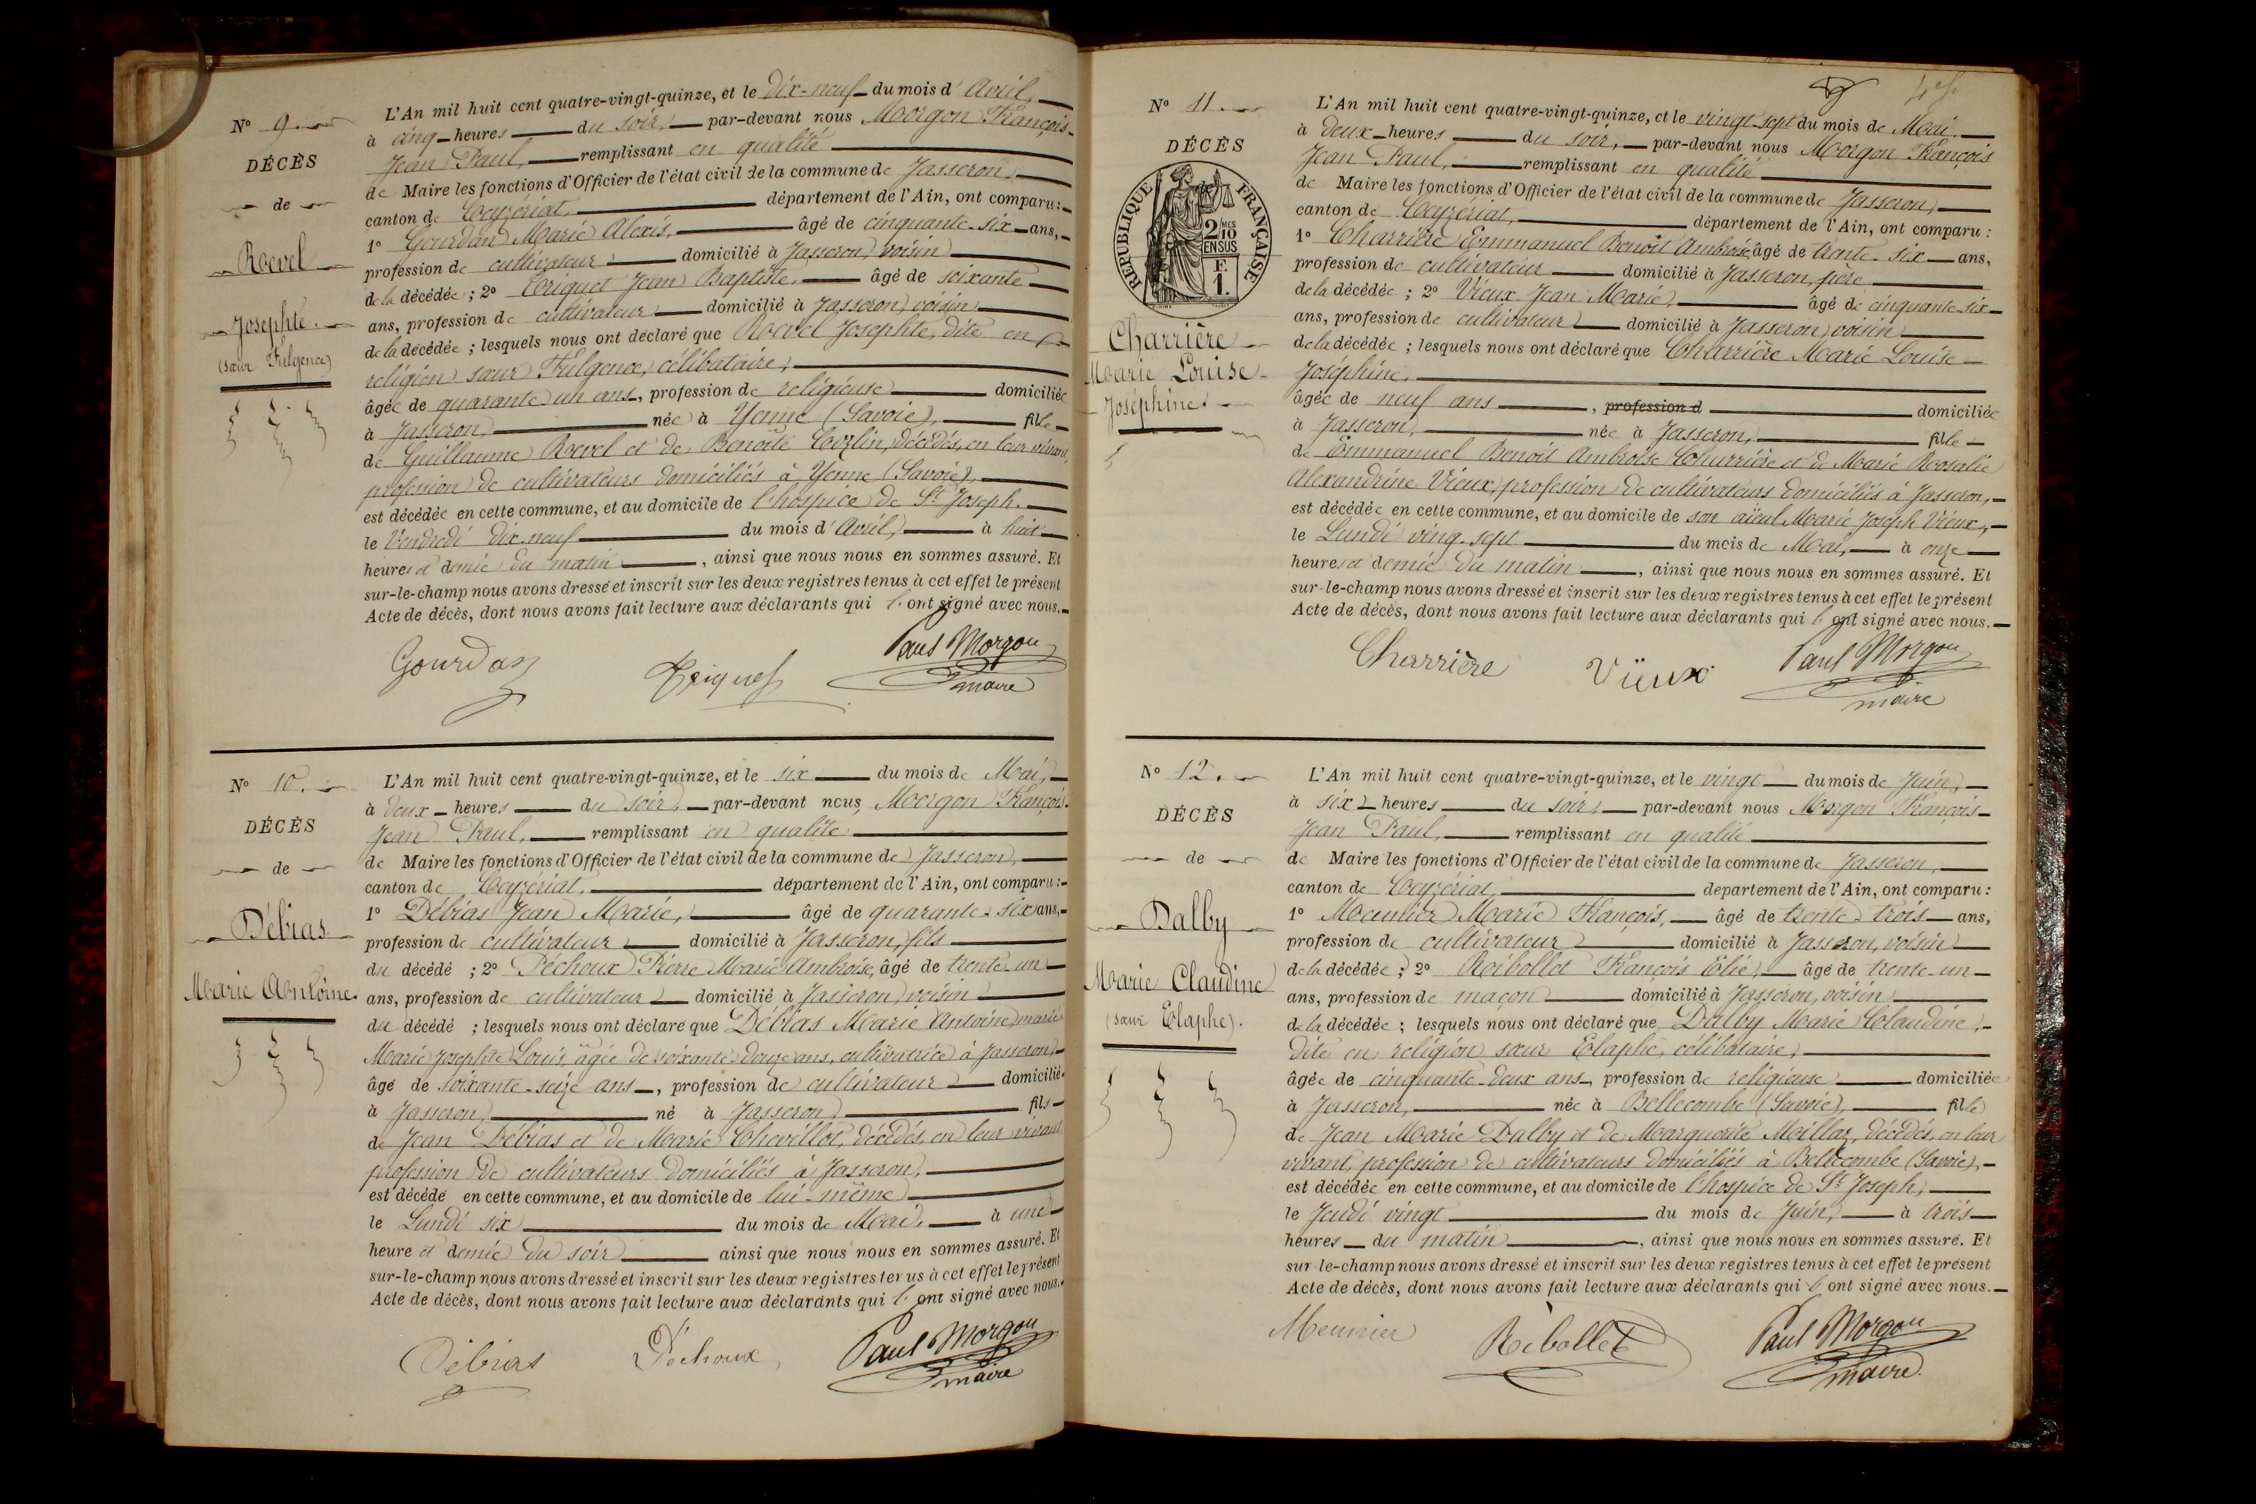 Nº 9.
DÉCÈS
de
Revel
Josephte.
(sœur Fulgence)
L'An mil huit cent quatre-vingt-quinze, et le dix-neuf du mois d'Avril,
à cinq heures du soir, par-devant nous Morgon François
Jean Paul, remplissant en qualité
de Maire les fonctions d'Officier de l'état civil de la commune de Jasseron,
canton de Ceyzériat, département de l'Ain, ont comparu :
1º Gourdan Marie Alexis, âgé de cinquante-six ans,
profession de cultivateur domicilié à Jasseron, voisin
de la décédée ; 2º Jean Baptiste, âgé de soixante
ans, profession de cultivateur domicilié à Jasseron, voisin
de la décédée ; lesquels nous ont déclaré que Revel Josephte, dite en
religion sœur Fulgence, célibataire,
âgée de quarante un ans, profession de religieuse domiciliée
à Jasseron, née à Yenne (Savoie), fille
de Guillaume Revel et de Benoîte décédés, en leur vivant,
profession de cultivateurs domiciliés à Yenne (Savoie),
est décédée en cette commune, et au domicile de l'hospice de St Joseph.
le Vendredi dix-neuf du mois d'Avril, à huit
heures et demie du matin, ainsi que nous nous en sommes assuré. Et
sur-le-champ nous avons dressé et inscrit sur les deux registres tenus à cet effet le présent
Acte de décès, dont nous avons fait lecture aux déclarants qui l'ont signé avec nous.
Gourdan Paul Morgon
maire
Nº 10.
DÉCÈS
de
Débias
Marie Antoine.
L'An mil huit cent quatre-vingt-quinze, et le six du mois de Mai,
à deux heures du soir, par-devant nous Morgon François
Jean Paul, remplissant en qualité
de Maire les fonctions d'Officier de l'état civil de la commune de Jasseron,
canton de Ceyzériat, département de l'Ain, ont comparu :
1º Débias Jean Marie, âgé de quarante-six ans,
profession de cultivateur domicilié à Jasseron, fils
du décédé ; 2º Péchoux Pierre Marie Ambroise, âgé de trente-un
ans, profession de cultivateur domicilié à Jasseron, voisin
du décédé ; lesquels nous ont déclaré que Débias Marie Antoine, marié
Marie Josephte Louis, âgée de soixante-douze ans, cultivatrice à Jasseron,
âgé de soixante-seize ans, profession de cultivateur domicilié
à Jasseron, né à Jasseron, fils
de Jean Débias et de Marie Chevillot, décédés, en leur vivant
profession de cultivateurs domiciliés à Jasseron,
est décédé en cette commune, et au domicile de lui-même
le Lundi six du mois de Mai, à une
heure et demie du soir ainsi que nous nous en sommes assuré. Et
sur-le-champ nous avons dressé et inscrit sur les deux registres tenus à cet effet le présent
Acte de décès, dont nous avons fait lecture aux déclarants qui l'ont signé avec nous.
Débias Péchoux Paul Morgon
maire
Nº 11.
DÉCÈS
REPUBLIQUE FRANÇAISE
2/10 MES
EN SUS
F.
1.
Charrière
Marie Louise
Joséphine.
L'An mil huit cent quatre-vingt-quinze, et le vingt-sept du mois de Mai
à deux heures du soir, par-devant nous Morgon François
Jean Paul, remplissant en qualité
de Maire les fonctions d'Officier de l'état civil de la commune de Jasseron,
canton de Ceyzériat, département de l'Ain, ont comparu :
1º Charrière Emmanuel Benoît Ambroise âgé de trente-six ans,
profession de cultivateur domicilié à Jasseron, père
de la décédée ; 2º Vieux Jean Marie, âgé de cinquante-six
ans, profession de cultivateur domicilié à Jasseron, voisin
de la décédée ; lesquels nous ont déclaré que Charrière Marie Louise
Joséphine,
âgée de neuf ans, profession d domiciliée
à Jasseron, née à Jasseron, fille
de Emmanuel Benoit Ambroise Charrière et de Marie Rosalie
Alexandrine Vieux, profession de cultivateurs domiciliés à Jasseron,
est décédée en cette commune, et au domicile de son aïeul Marie Joseph Vieux,
le Lundi ving-sept du mois de Mai, à onze
heures et demie du matin, ainsi que nous nous en sommes assuré. Et
sur-le-champ nous avons dressé et inscrit sur les deux registres tenus à cet effet le présent
Acte de décès, dont nous avons fait lecture aux déclarants qui l'ont signé avec nous.
Charrière Vieux Paul Morgon
maire
Nº 12.
DÉCÈS
de
Dalby
Marie Claudine
(sœur Elaphe).
L'An mil huit cent quatre-vingt-quinze, et le vingt du mois de Juin,
à six heures du soir, par-devant nous Morgon François
Jean Paul, remplissant en qualité
de Maire les fonctions d'Officier de l'état civil de la commune de Jasseron,
canton de Ceyzériat, département de l'Ain, ont comparu :
1º Meunier Marie François, âgé de trente-trois ans,
profession de cultivateur domicilié à Jasseron, voisin
de la décédée ; 2º Réibollet François Elie, âgé de trente-un
ans, profession de maçon domicilié à Jasseron, voisin
de la décédée ; lesquels nous ont déclaré que Dalby Marie Claudine,
dite en religion sœur Elaphe, célibataire,
âgée de cinquante-deux ans, profession de religieuse domiciliée
à Jasseron, née à Bellecombe (Savoie), fille
de Jean Marie Dalby et de Marguerite décédés, en leur
vivant, profession de cultivateurs domiciliés à Bellecombe (Savoie),
est décédée en cette commune, et au domicile de l'hospice de St Joseph,
le Jeudi vingt du mois de Juin, à trois
heures du matin, ainsi que nous nous en sommes assuré. Et
sur-le-champ nous avons dressé et inscrit sur les deux registres tenus à cet effet le présent
Acte de décès, dont nous avons fait lecture aux déclarants qui l'ont signé avec nous.
Meunier Rebollet Paul Morgon
maire.